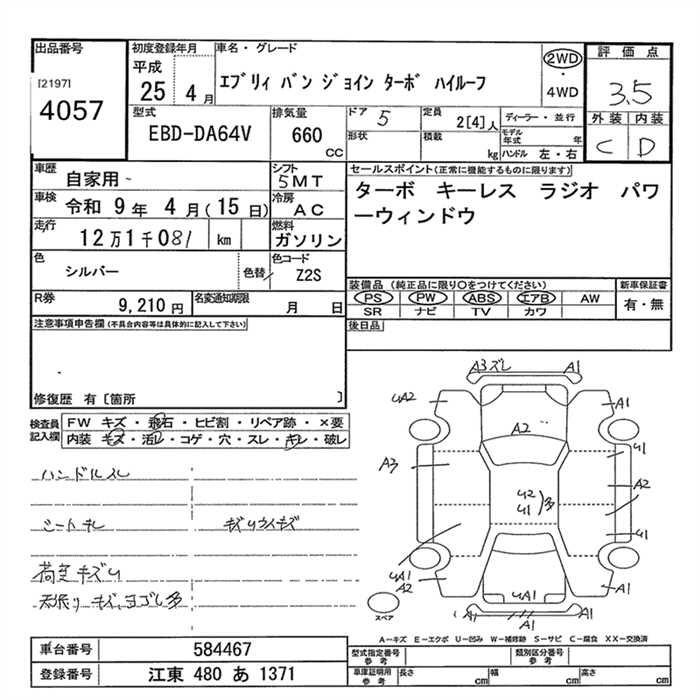 出品番号
[2197]
4057
初度登録年月
平成
25 4月
車名・グレード
エブリィ バン ジョイン ターボ ハイルーフ
2WD
・
4WD
評価点
3.5
外装 内装
C D
型式
EBD-DA64V
排気量
660
cc
ドア 5
形状
定員
2[4]人
積載
kg
ディーラー・並行
モデル年式 年
ハンドル 左・右
車歴
自家用
シフト
5MT
車検 令和 9年 4月(15日)
冷房
AC
走行
12万1千081 km
燃料
ガソリン
色
シルバー
色替
色コード
Z2S
R券
9,210円
名変通知期限
月 日
セールスポイント(正常に機能するものに限ります)
ターボ キーレス ラジオ パワ
ーウィンドウ
装備品(純正品に限り〇をつけてください)
PS PW ABS エアB AW
SR ナビ TV カワ
新車保証書
有・無
後日品
注意事項申告欄(不具合内容等は具体的に記入して下さい)
修復歴 有〔箇所 〕
検査員記入欄
FW キズ・飛石・ヒビ割・リペア跡・×要
内装 キズ・汚レ・コゲ・穴・スレ・キレ・破レ
ハンドルスレ
シートキレ
荷室キズU
天張りキズ、ヨゴレ多
A3ズレ
A1
UA2
A1
A2
A3
U1
A2
U2
U1
多
U1
UA1
A2
UA1
A1
A1
A1
スペア
A-キズ E-エクボ U-凹み W-補修跡 S-サビ C-腐食 XX-交換済
車台番号
584467
登録番号
江東 480 あ 1371
型式指定番号
参考
類別区分番号
参考
車庫証明用
参考
長さ cm
幅 cm
高さ cm